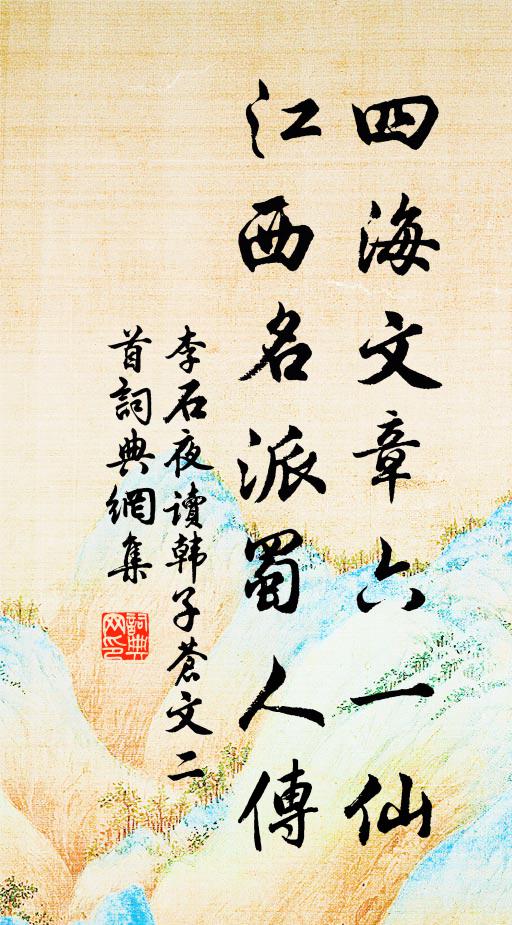 四海文章六一仙
江西名派蜀人傳
李石夜讀韩子蒼文二
首詞典網集
詞典
网印